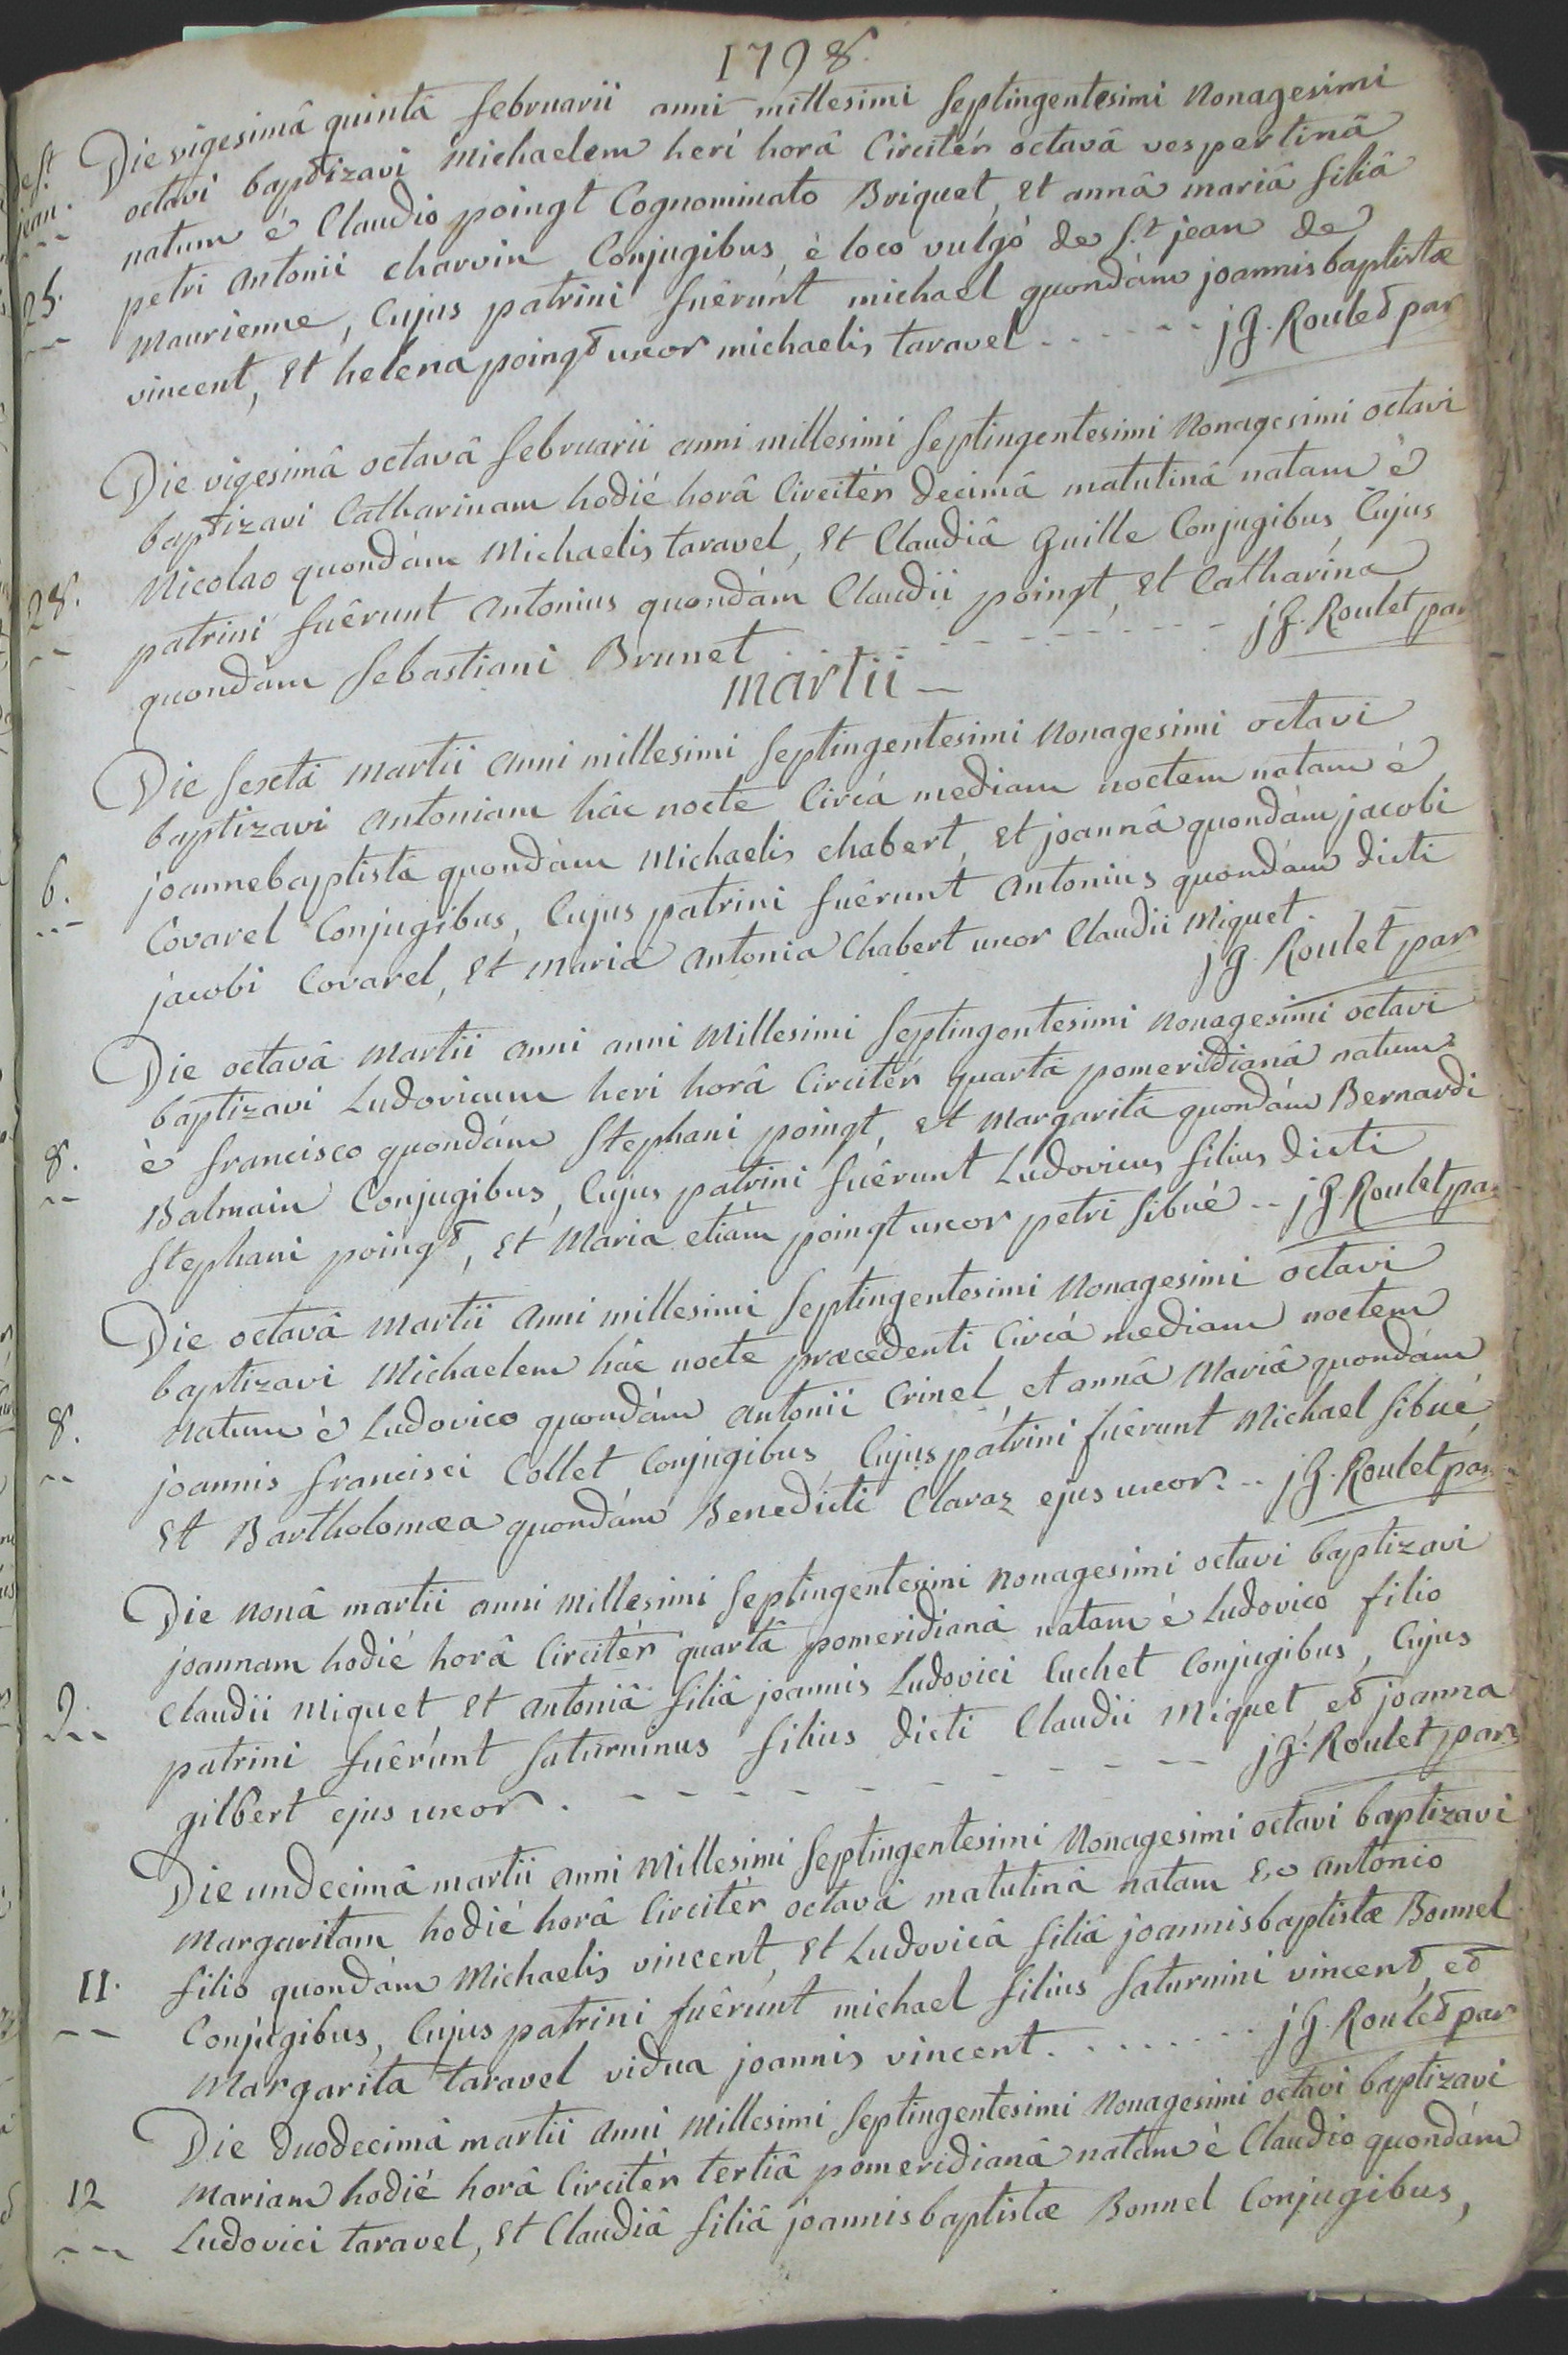 1798.
est
jean.
25.
Die vigesimâ quintâ februarii anni millesimi septingentesimi nonagesimi
octavi baptizavi Michaelem heri horâ Circitér octavâ vespertinâ
natum è Claudio poingt Cognominato Briquet, Et annâ mariâ filiâ
petri Antonii charvin Conjugibus è loco vulgò de S.t jean de
Maurienne, Cujus patrini fuêrunt michael quondám joannisbaptistæ
vincent, Et helena poingt uxor michaelis taravel . - - - - - jG. Roulet par
28.
Die vigesimâ octavâ februarii anni millesimi septingentesimi Nonagesimi octavi
baptizavi Catharinam hodié horâ Circitér decimâ matutinâ natam è
Nicolao quondám Michaelis taravel, Et Claudiâ Guille Conjugibus, Cujus
patrini fuêrunt Antonius quondám Claudii poingt, Et Catharina
quondám Sebastiani Brunet - - - - - - - - - jG. Roulet par
martii -
6.
Die sextâ martii Anni millesimi septingentesimi Nonagesimi octavi
baptizavi Antoniam hâc nocte Circá mediam noctem natam è
joannebaptistâ quondám Michaelis chabert, Et joannâ quondám jacobi
Covarel Conjugibus, Cujus patrini fuêrunt Antonius quondám dicti
jacobi Covarel, Et maria Antonia Chabert uxor Claudii Miquet.
jG. Roulet par
8.
Die octavâ martii anni anni Millesimi septingentesimi Nonagesimi octavi
baptizavi Ludovicum heri horâ Circitér quartâ pomeridianâ natum
è francisco quondám Stephani poingt, et Margaritâ quondám Bernardi
Balmain Conjugibus, Cujus patrini fuêrunt Ludovicus filius dicti
Stephani poingt, Et Maria etiám poingt uxor petri Sibué - - jG. Roulet par
8.
Die octavâ martii Anni millesimi septingentesimi Nonagesimi octavi
baptizavi Michaelem hâc nocte præcedenti Circá mediam noctem
Natum è Ludovico quondám Antonii Crinel, et annâ Mariâ quondám
joannis francisci Collet Conjugibus, Cujus patrini fuêrunt Michael Sibué,
Et Bartholomæa quondám Benedicti Claraz ejus uxor. - - jG. Roulet par
9.
Die nonâ martii anni Millesimi septingentesimi nonagesimi octavi baptizavi
joannam hodié horâ Circitér quartâ pomeridianâ natam è Ludovico filio
Claudii Miquet Et Antoniâ filiâ joannis Ludovici Cuchet Conjugibus, Cujus
patrini fuêrunt Saturninus filius dicti Claudii Miquet, et joanna
gilbert ejus uxor . - - - - - - - - - - jG. Roulet par
11.
Die undecimâ martii Anni Millesimi septingentesimi Nonagesimi octavi baptizavi
Margaritam hodié horâ Circitér octavâ matutinâ natam Ex Antonio
filio quondám Michaelis vincent, Et Ludovicâ filiâ joannisbaptistæ Bonnel
Conjugibus, Cujus patrini fuêrunt michael filius Saturnini vincent, et
Margarita taravel vidua joannis vincent. . . . . . . . jG. Roulet par
12
Die duodecimâ martii Anni Millesimi septingentesimi Nonagesimi octavi baptizavi
Mariam hodié horâ Circitér tertiâ pomeridianâ natam è Claudio quondám
Ludovici taravel, Et Claudiâ filiâ joannisbaptistæ Bonnel Conjugibus,